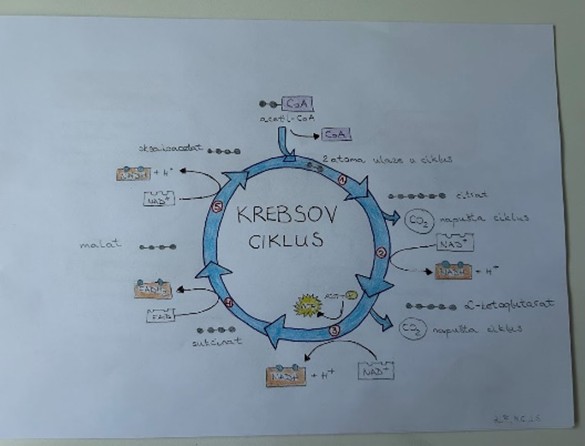 CoA
acetil-CoA
CoA
2 atoma ulaze u ciklus
oksaloacetat
NADH + H⁺
NAD⁺
5
1
citrat
CO₂ napušta ciklus
KREBSOV
CIKLUS
NAD⁺
2
NADH + H⁺
malat
FADH₂
FAD
4
α-ketoglutarat
CO₂ napušta ciklus
3
sukcinat
NADH + H⁺
NAD⁺